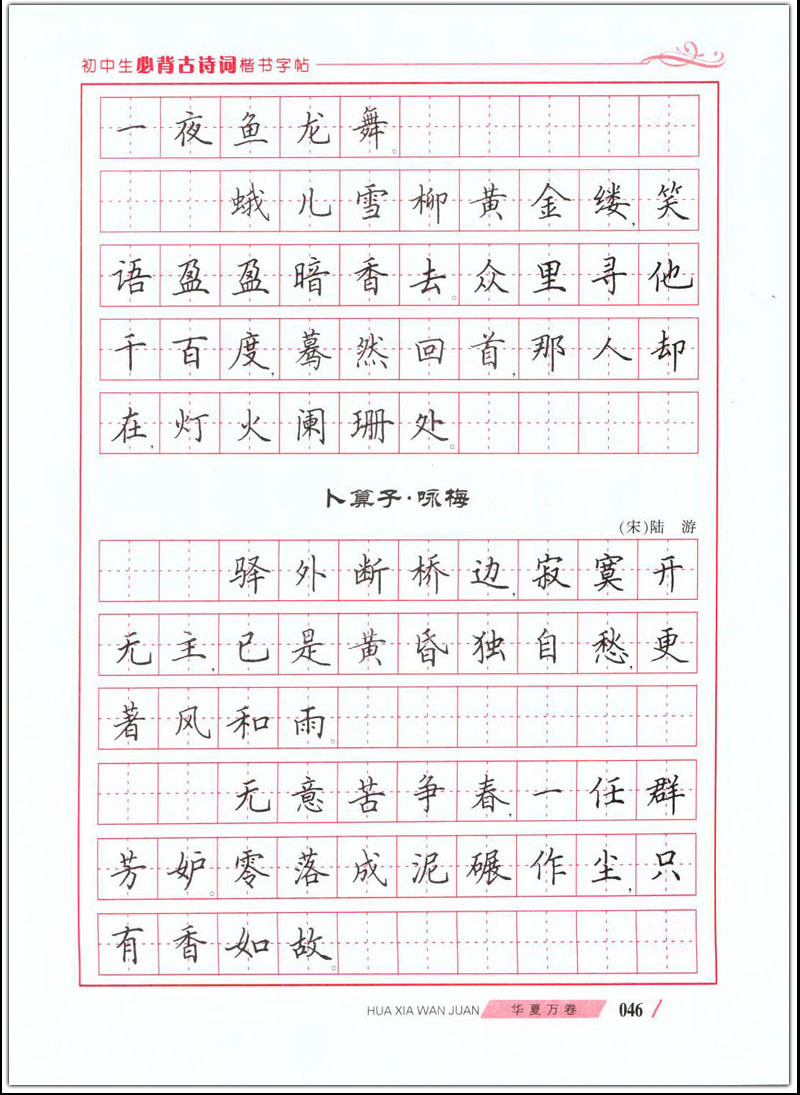 初中生必背古诗词楷书字帖
一夜鱼龙舞。
蛾儿雪柳黄金缕,笑
语盈盈暗香去。众里寻他
千百度,蓦然回首,那人却
在,灯火阑珊处。
卜算子·咏梅
(宋)陆 游
驿外断桥边,寂寞开
无主,已是黄昏独自愁,更
著风和雨。
无意苦争春,一任群
芳妒。零落成泥碾作尘,只
有香如故。
HUA XIA WAN JUAN 华夏万卷 046